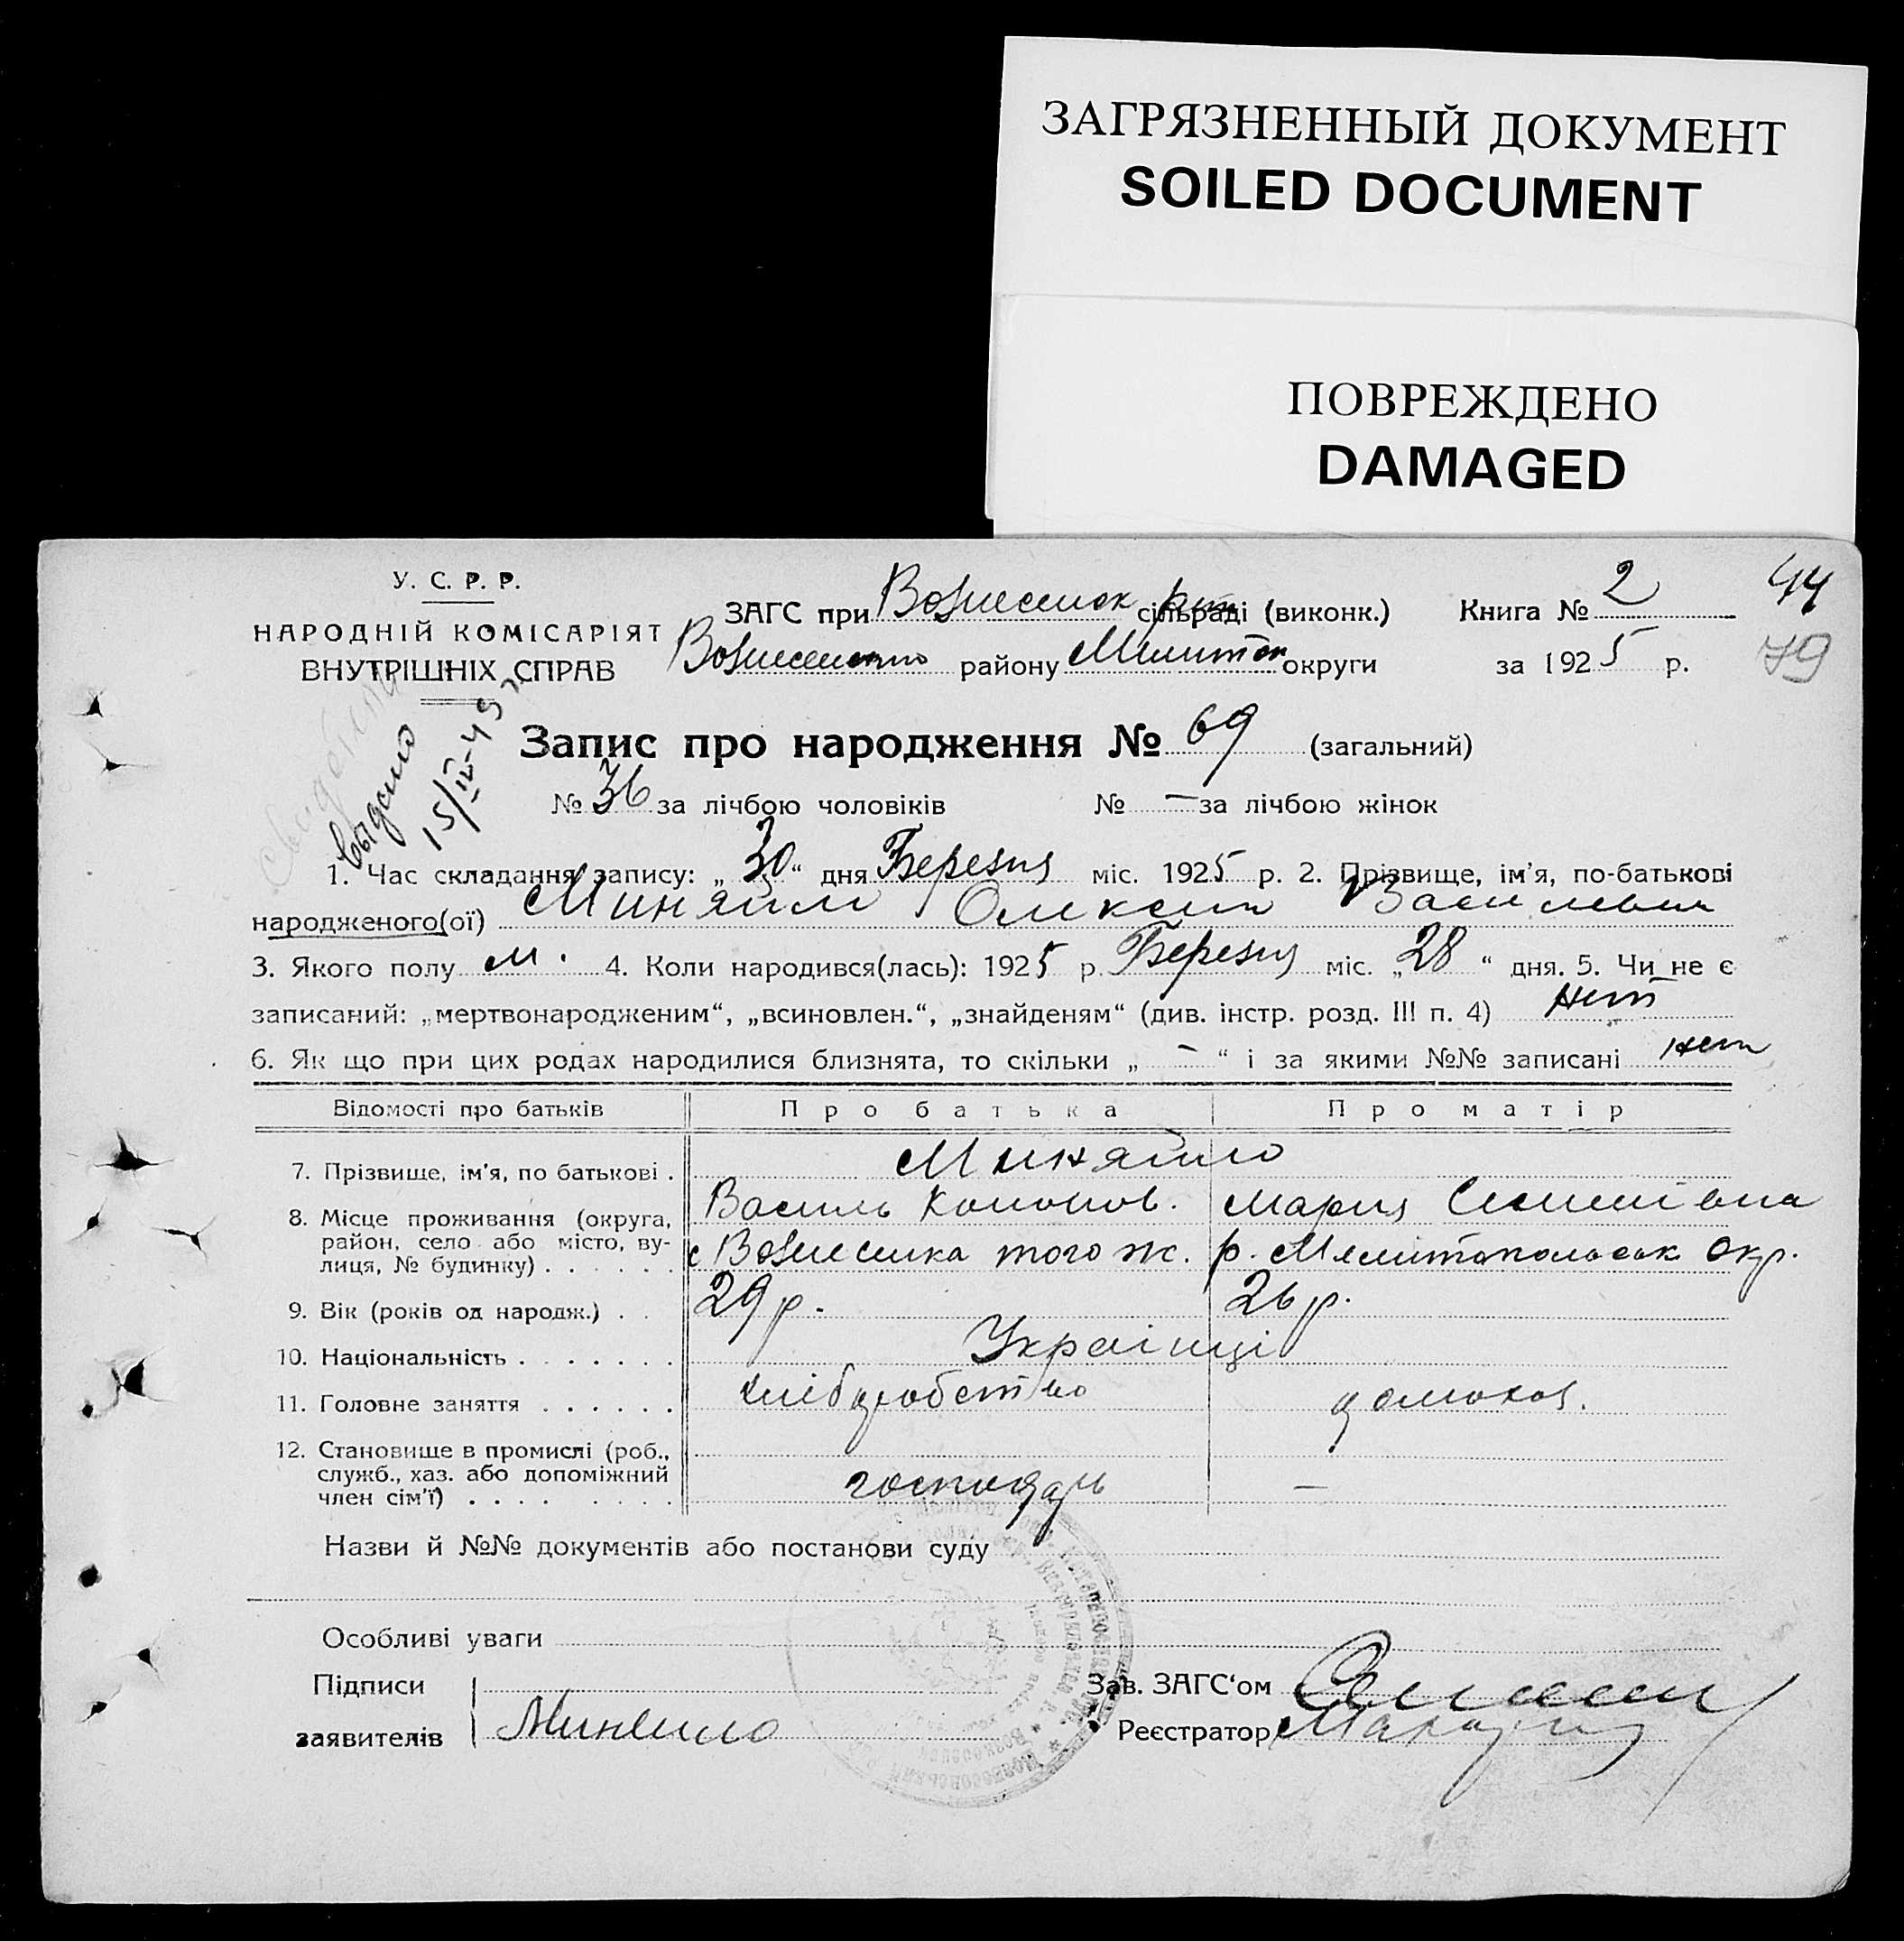 ЗАГРЯЗНЕННЫЙ ДОКУМЕНТ
SOILED DOCUMENT
ПОВРЕЖДЕНО
DAMAGED
У. С. Р. Р.
НАРОДНІЙ КОМІСАРІЯТ
ВНУТРІШНІХ СПРАВ
ЗАГС при Вознесенск рик сільраді (виконк.) Книга № 2 44
Вознесенськ району Мелитоп округи за 1925 р. 79
выдано
15/IV-49
Запис про народження № 69 (загальний)
№ 36 за лічбою чоловіків № — за лічбою жінок
1. Час складання запису: „30“ дня Березня міс. 1925 р. 2. Прізвище, ім'я, по-батькові
народженого(ої) Миняйло Олексій Васильевич
3. Якого полу м. 4. Коли народився(лась): 1925 р. Березня міс. „28“ дня. 5. Чи не є
записаний: „мертвонародженим“, „всиновлен.“, „знайденям“ (див. інстр. розд. III п. 4) нет
6. Як що при цих родах народилися близнята, то скільки „—“ і за якими №№ записані нет
Відомості про батьків Про батька Про матір
7. Прізвище, ім'я, по батькові . Миняйло
Василь Кононов. Мария Семенівна
8. Місце проживання (округа, район, село або місто, ву-лиця, № будинку) . . . . . . с Вознесенка того ж. р. Мелитопольськ окр.
9. Вік (років од народж.) . . 29 р. 26 р.
10. Національність . . . . . . . Українці
11. Головне заняття . . . . . . хліборобство домохоз.
12. Становище в промислі (роб., служб., хаз. або допоміжний член сім'ї) . . . . . . . . господарь —
Назви й №№ документів або постанови суду
Особливі уваги
Підписи Зав. ЗАГС'ом
заявителів Миняйло Реєстратор